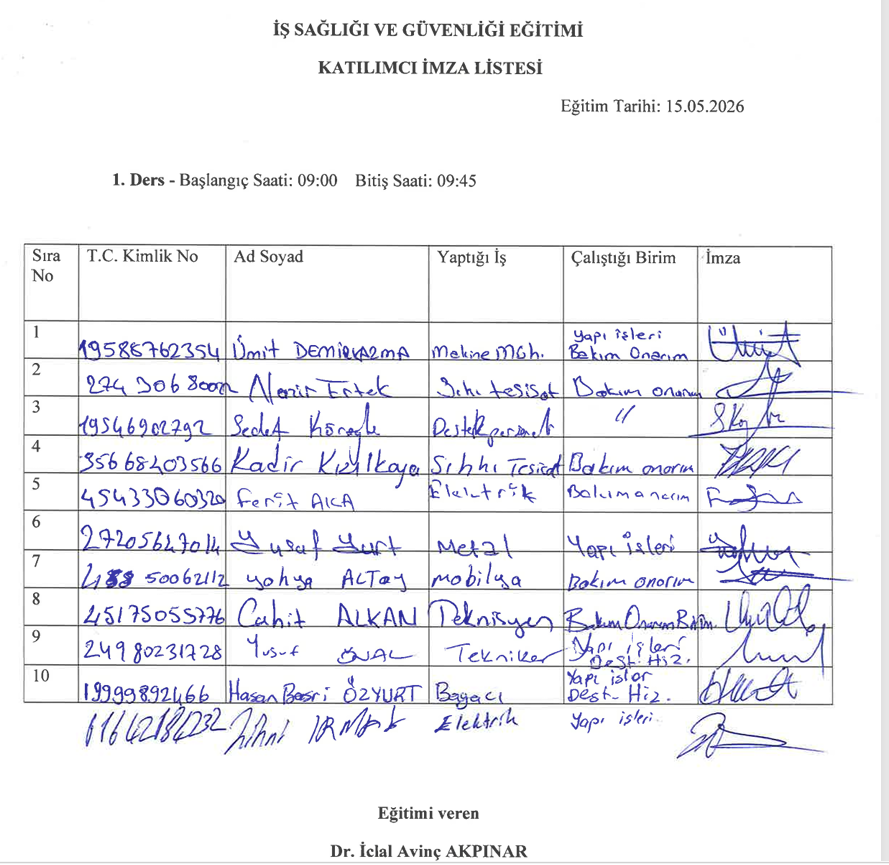 İŞ SAĞLIĞI VE GÜVENLİĞİ EĞİTİMİ
KATILIMCI İMZA LİSTESİ
Eğitim Tarihi: 15.05.2026
1. Ders - Başlangıç Saati: 09:00 Bitiş Saati: 09:45
Sıra No T.C. Kimlik No Ad Soyad Yaptığı İş Çalıştığı Birim İmza
1 19586762354 Ümit DEMİRKAZMA Makine Müh. Yapı işleri Bakım Onarım
2 Nazir Ertek Sıhı tesisat Bakım onarım
3 19546902792 Sedef Köroğlu Destek personeli "
4 35668203566 Kadir Kızılkaya Sıhhi Tesisat Bakım onarım
5 45433060320 Ferit AKA Elektrik Bakım onarım
6 27205647014 Yusuf Yurt Metal Yapı işleri
7 yahya ALTAY mobilya Bakım onarım
8 45175055776 Cahit ALKAN Teknisyen Bakım Onarım Birim.
9 24980231728 Yusuf ÖNAL Tekniker Yapı işleri Dest. Hiz.
10 19999892466 Hasan Basri ÖZYURT Boyacı Yapı işler Dest- Hiz.
61642184232 IRMAK Elektrik Yapı işleri
Eğitimi veren
Dr. İclal Avinç AKPINAR